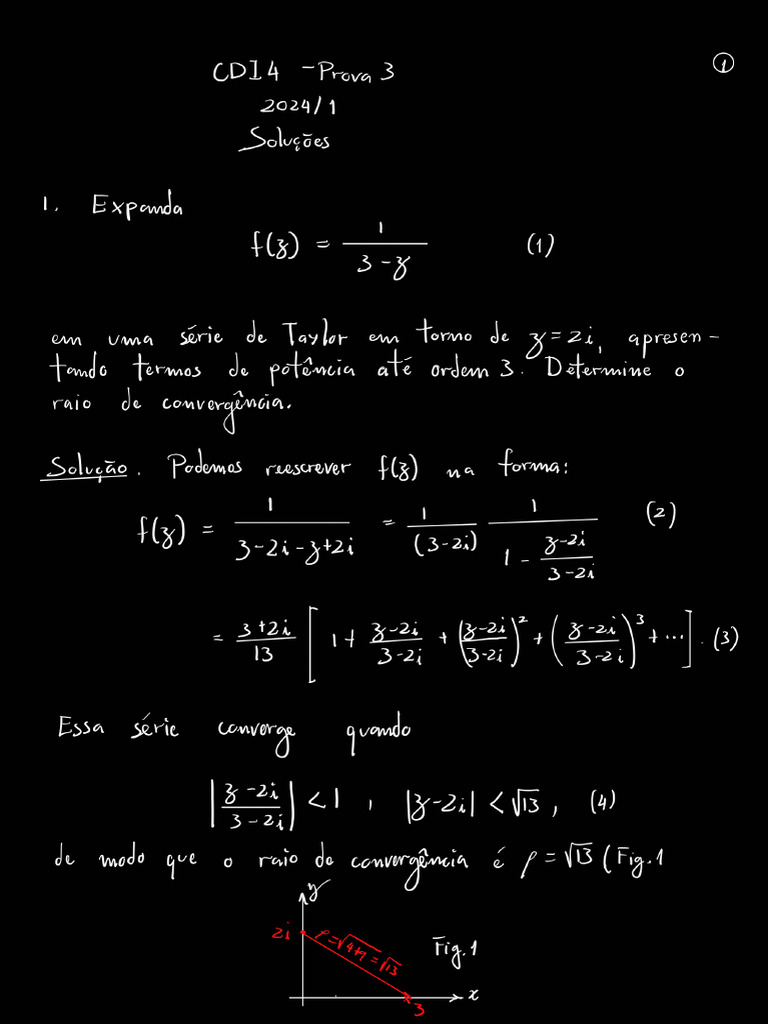 ①
CDI4 - Prova 3
2024/1
Soluções
1. Expanda
f(z) = 1/(3-z) (1)
em uma série de Taylor em torno de z=2i, apresen-
tando termos de potência até ordem 3. Determine o
raio de convergência.
Solução. Podemos reescrever f(z) na forma:
f(z) = 1/(3-2i-z+2i) = 1/(3-2i) 1/(1 - (z-2i)/(3-2i)) (2)
= (3+2i)/13 [1 + (z-2i)/(3-2i) + ((z-2i)/(3-2i))² + ((z-2i)/(3-2i))³ + ...]. (3)
Essa série converge quando
|(z-2i)/(3-2i)| < 1, |z-2i| < √13, (4)
de modo que o raio de convergência é ρ = √13 (Fig.1
y
2i
ρ=√4+9=√13
Fig.1
x
3